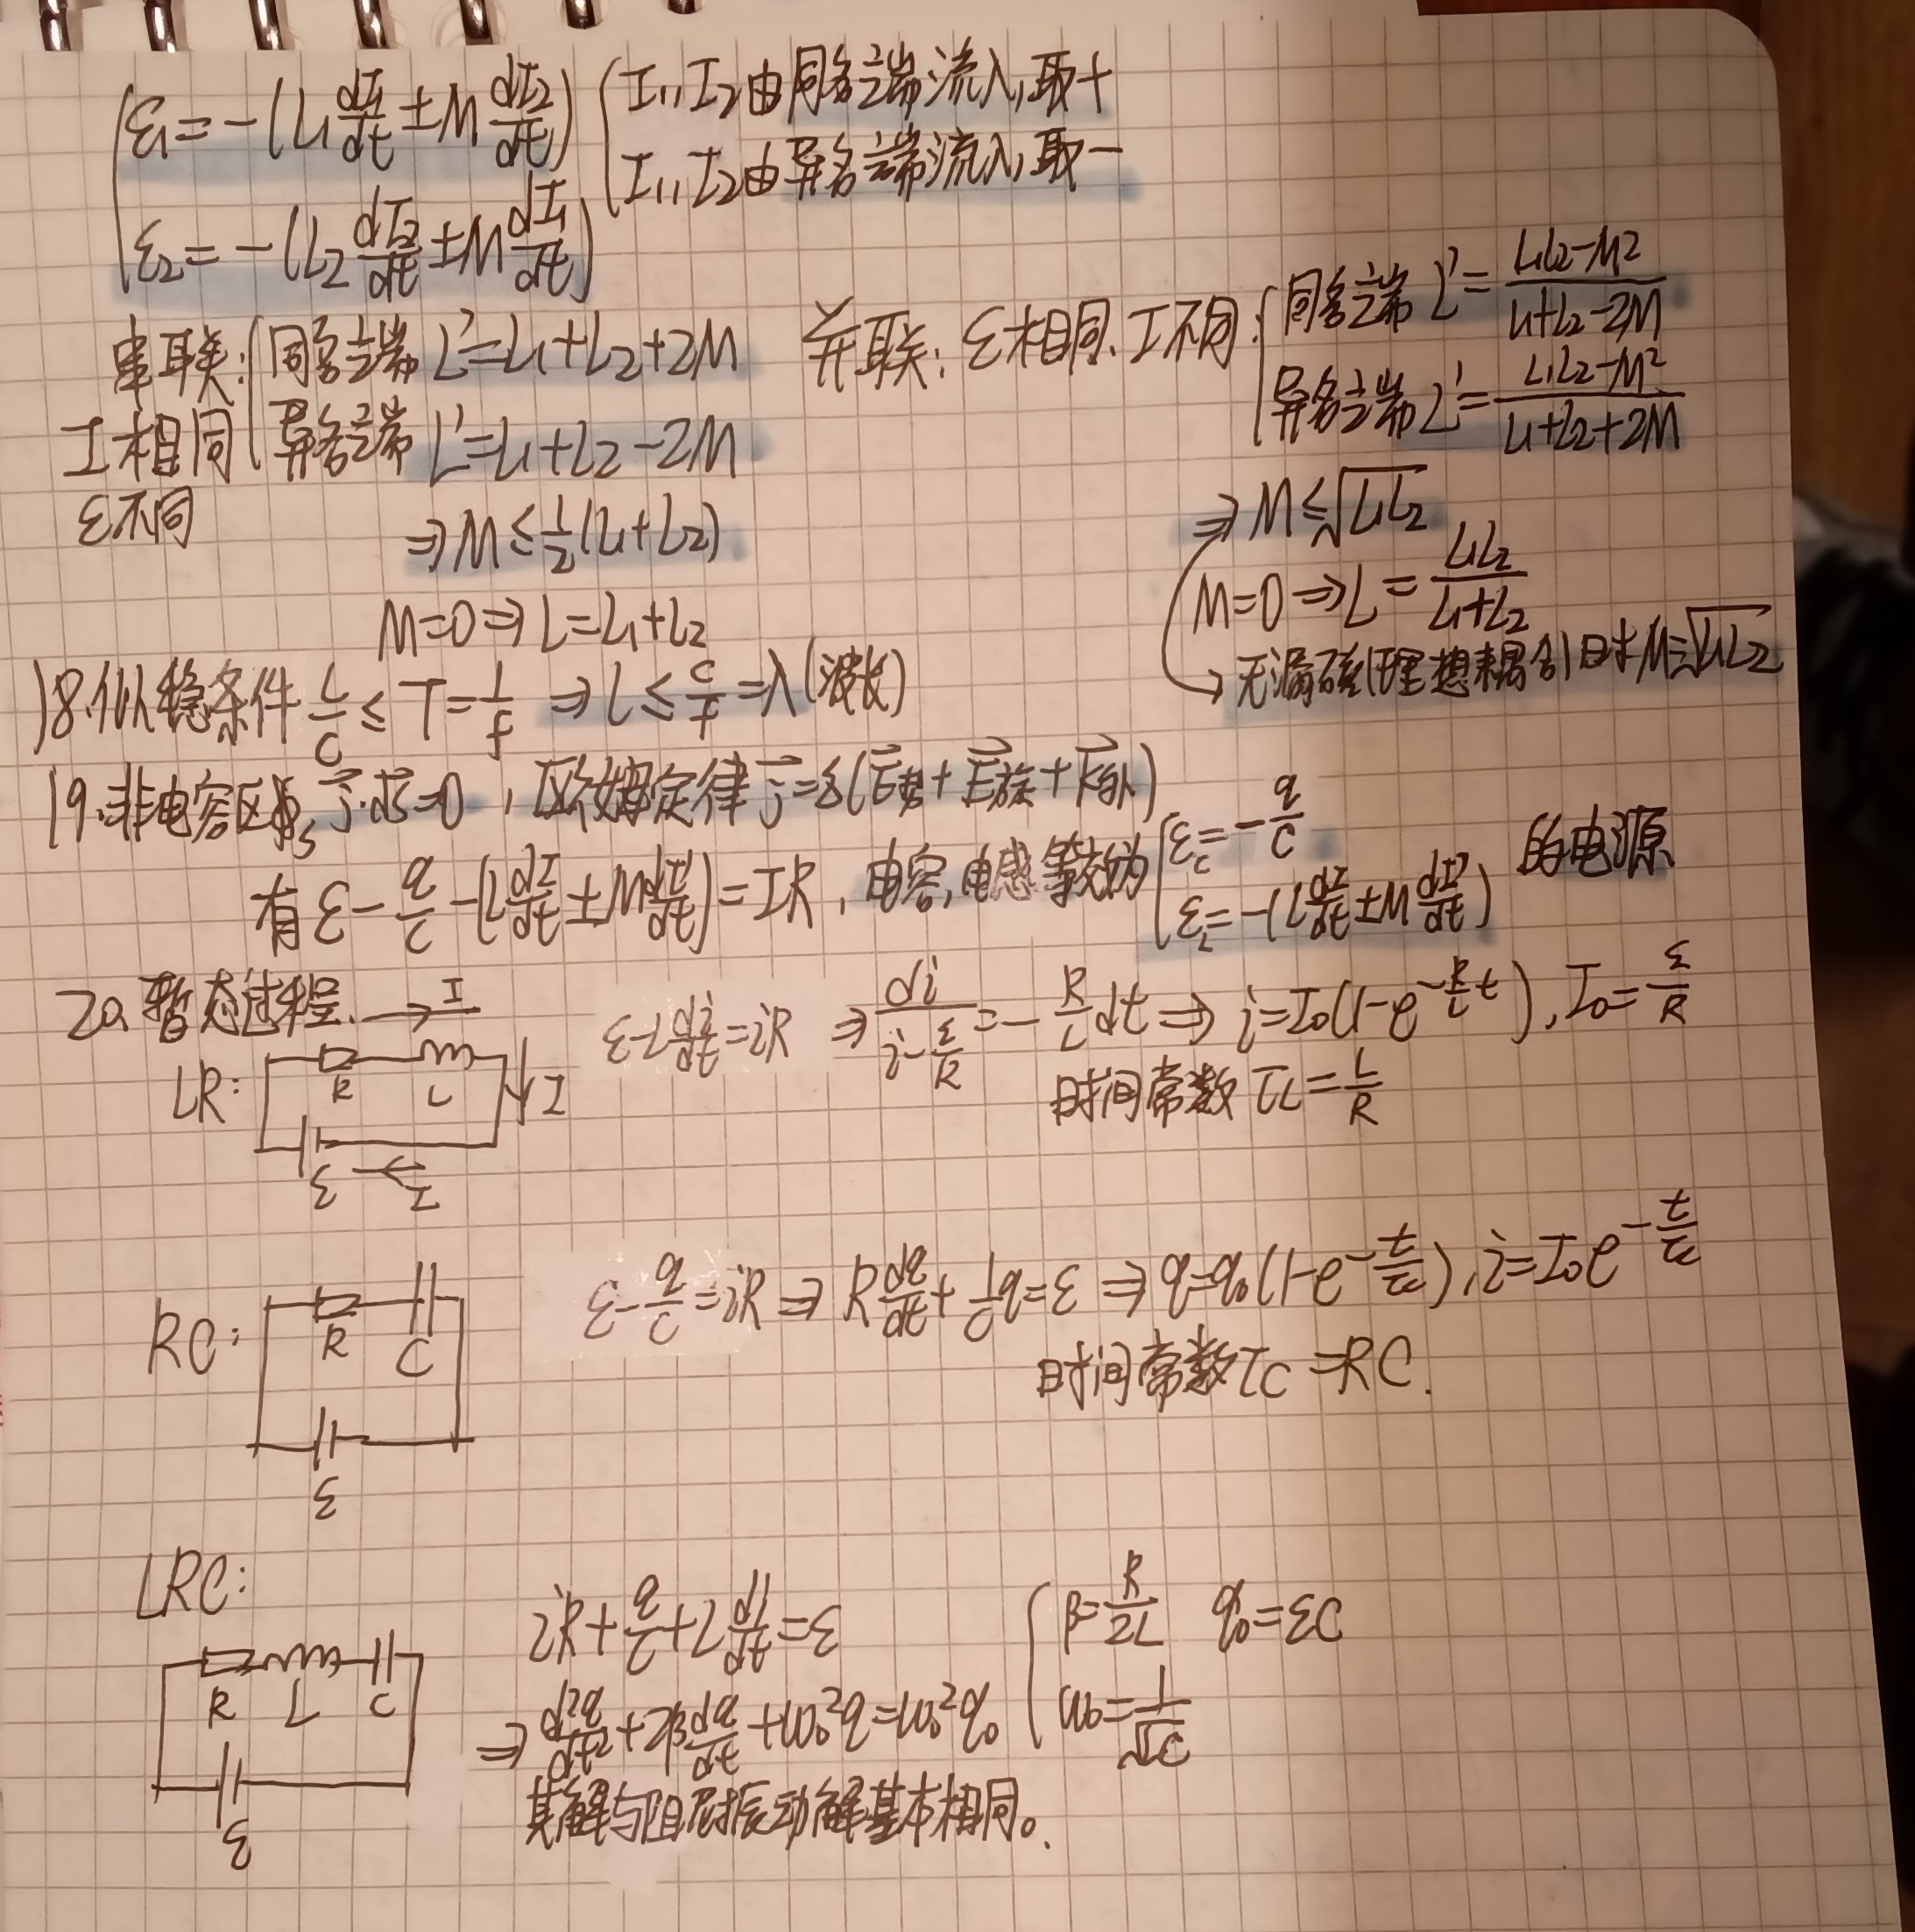 ε₁=-(L₁dI₁/dt±M dI₂/dt) I₁,I₂由同名端流入,取+
I₁,I₂由异名端流入,取-
ε₂=-(L₂dI₂/dt±M dI₁/dt)
串联:同名端L'=L₁+L₂+2M
I相同 异名端L'=L₁+L₂-2M
ε不同
⇒M≤½(L₁+L₂)
M=0⇒L=L₁+L₂
并联:ε相同、I不同:同名端L'=(L₁L₂-M²)/(L₁+L₂-2M)
异名端L'=(L₁L₂-M²)/(L₁+L₂+2M)
⇒M≤√(L₁L₂)
M=0⇒L=L₁L₂/(L₁+L₂)
→无漏磁(理想耦合)时M=√(L₁L₂)
18.似稳条件 L/c≤T=1/f ⇒L≤c/f=λ(波长)
19.非电容区∮s j·ds=0,欧姆定律j=δ(E势+E旋+K外)
有ε-q/C-(L dI/dt±M dI'/dt)=IR,电容,电感等效为 εc=-q/C 的电源
ε_L=-(L dI/dt±M dI'/dt)
20.暂态过程. →I
LR: R L ↓I
ε ←I
ε-L di/dt=iR ⇒di/(i-ε/R)=-R/L dt⇒i=I₀(1-e^(-R/L t)),I₀=ε/R
时间常数τL=L/R
RC: R C
ε
ε-q/C=iR⇒R dq/dt+1/C q=ε⇒q=q₀(1-e^(-t/τc)),i=I₀e^(-t/τc)
时间常数τC=RC.
LRC:
R L C
ε
iR+q/C+L di/dt=ε β=R/2L q₀=εC
⇒d²q/dt²+2βdq/dt+ω₀²q=ω₀²q₀ ω₀=1/√(LC)
其解与阻尼振动解基本相同。